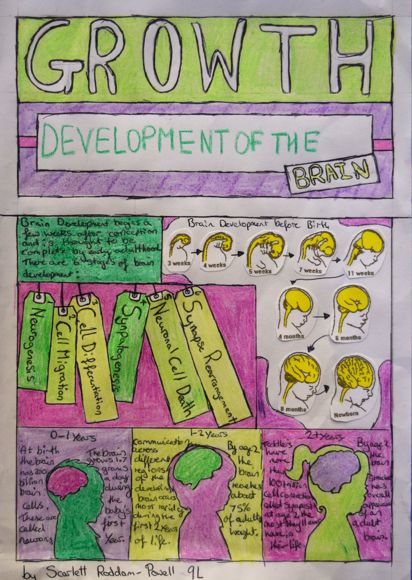 GROWTH
DEVELOPMENT OF THE
BRAIN
Brain Development begins a
few weeks after conception
and is thought to be
complete by early adulthood.
There are 6 stages of brain
development:
Brain Development before Birth
3 weeks
4 weeks
5 weeks
7 weeks
11 weeks
4 months
6 months
8 months
Newborn
1 Neurogenesis
2 Cell Migration
Cell Differentiation
Synaptogenesis
Neuronal Cell Death
Synapse Rearrangement
0-1 Years
At birth
the brain
has 200
billion
brain
cells.
These are
called
neurons.
The brain
grows 1.7
grams
a day
during
the
baby's
first
Year.
1-2 Years
Communication
across
different
the
brain
most rapid
during the
first 2 years
of life.
By age 2
the
brain
reaches
about
75%
of adult
weight.
2+ Years
Toddlers
have more
than
100 trillion
cell connections
called Synapses
at age 2, the
most they'll ever
have in
their life.
By age 2
the
brain
has
overall
appearance
of an
adult
brain.
by Scarlett Roddam-Powell 9L